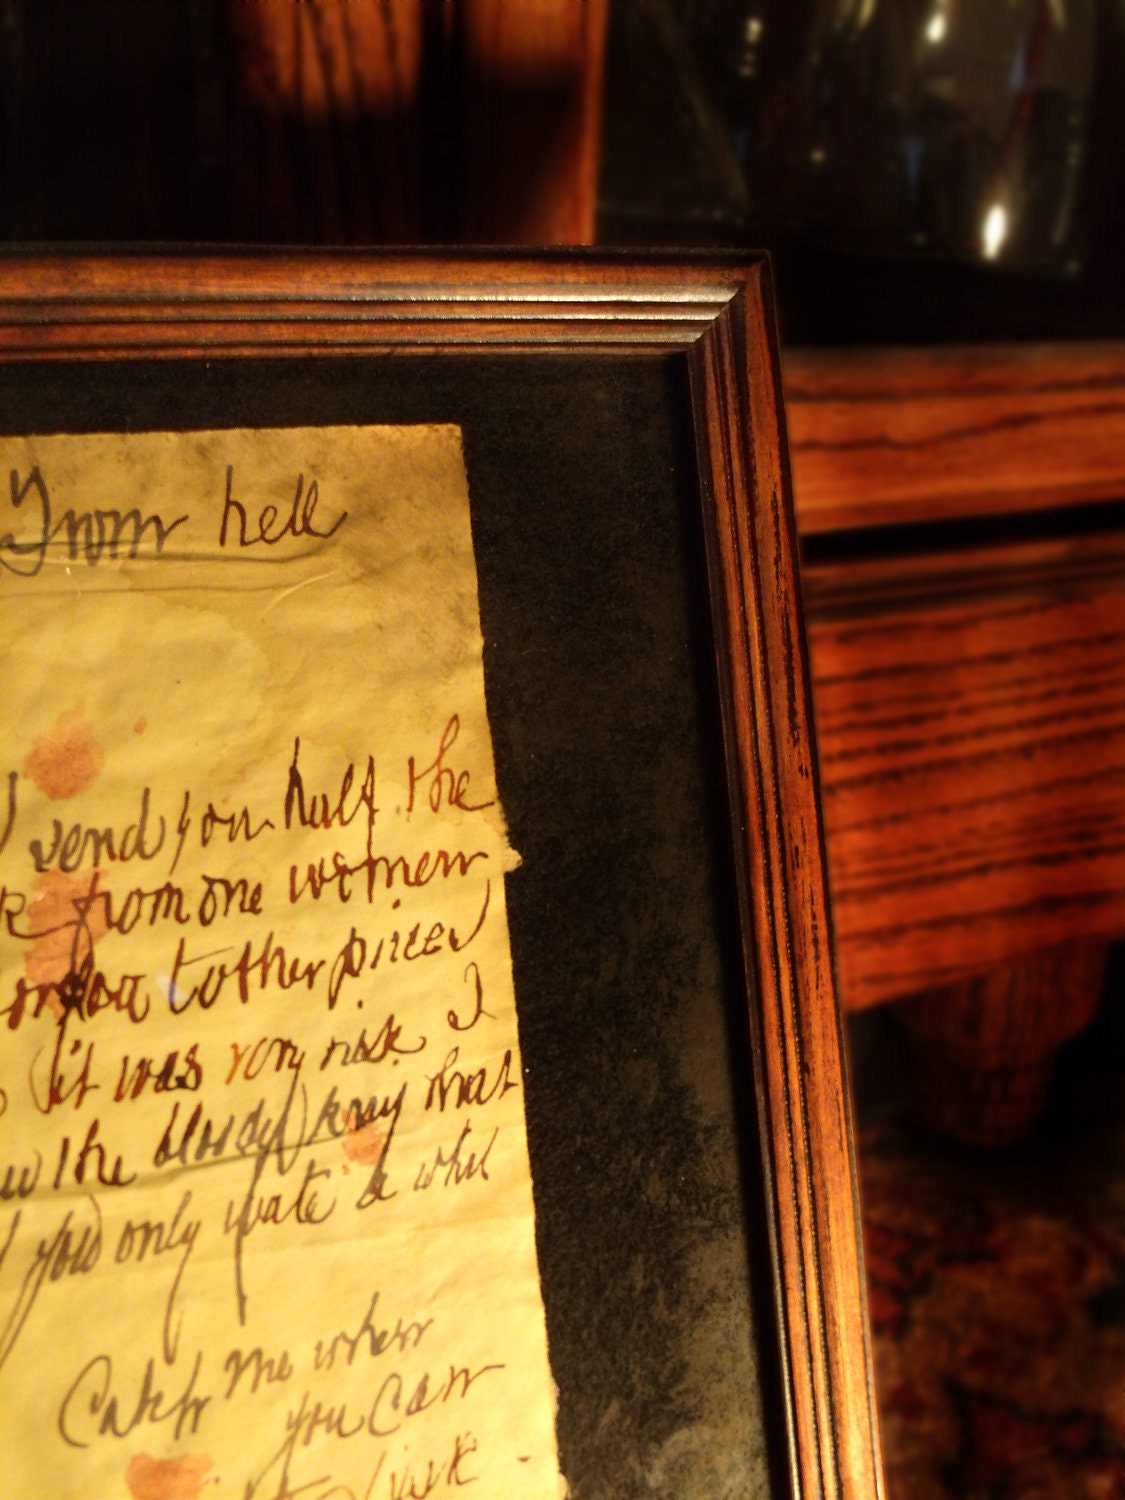 From hell
I send you half the
from one women
for you tother piece I
it was very nise I
the bloody knif that
you only wate a whil
Catch me when
you Can